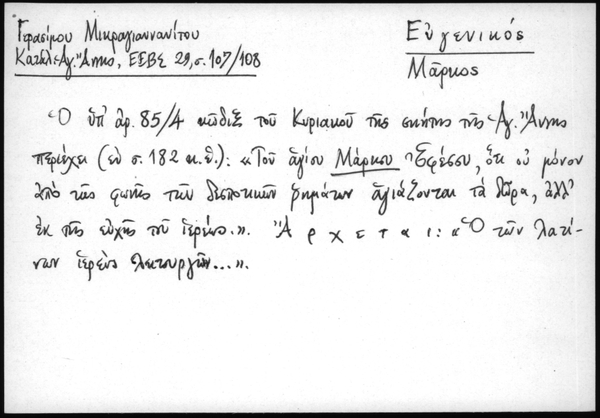 Γερασίμου Μικραγιαννανίτου
Καταλ. Ἁγ. Ἄννης, ΕΕΒΣ 29, σ. 107/108
Εὐγενικός
Μᾶρκος
Ὁ ὑπ' ἀρ. 85/4 κῶδιξ τοῦ Κυριακοῦ τῆς σκήτης τῆς Ἁγ. Ἄννης
περιέχει (ἐν σ. 182 κ. ἑ.): «Τοῦ ἁγίου Μάρκου Ἐφέσου, ὅτι οὐ μόνον
ἀπὸ τῆς φωνῆς τῶν δεσποτικῶν ῥημάτων ἁγιάζονται τὰ δῶρα, ἀλλ'
ἐκ τῆς εὐχῆς τοῦ ἱερέως.». Ἄρχεται: «Ὁ τῶν λατί-
νων ἱερεὺς λειτουργῶν...».